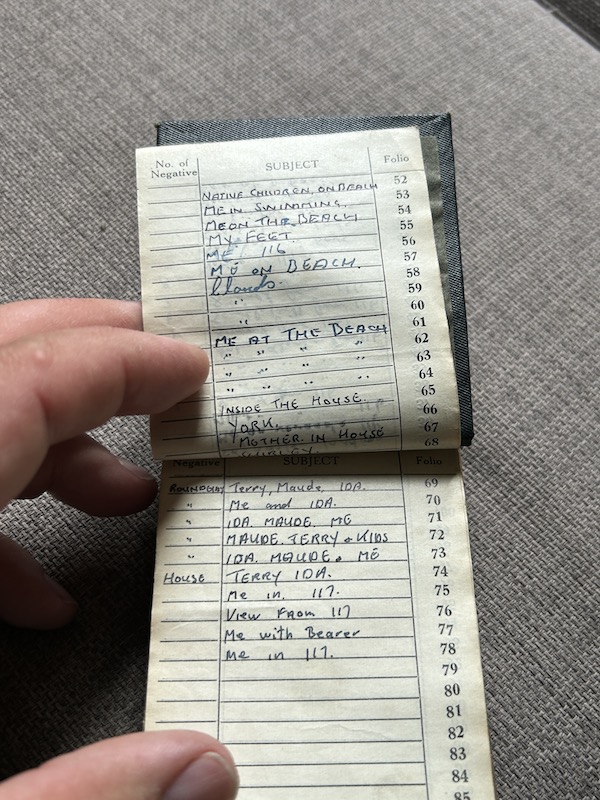 No. of Negative SUBJECT Folio
NATIVE CHILDREN, ON BEACH 52
ME IN SWIMMING. 53
ME ON THE BEACH 54
MY FEET. 55
ME 116 56
ME ON BEACH. 57
Clouds. 58
" 59
" 60
ME AT THE BEACH 61
" " " " 62
" " " " 63
" " " " 64
INSIDE THE HOUSE. 65
YORK. 66
MOTHER. IN HOUSE 67
SHIRLEY. 68
Negative SUBJECT Folio
Terry, Maude, IDA. 69
" Me and IDA. 70
" IDA. MAUDE. ME 71
" MAUDE. TERRY + KIDS 72
" IDA. MAUDE. ME 73
HOUSE TERRY IDA. 74
Me in. 117. 75
View From 117 76
Me with Bearer 77
Me in 117. 78
79
80
81
82
83
84
85